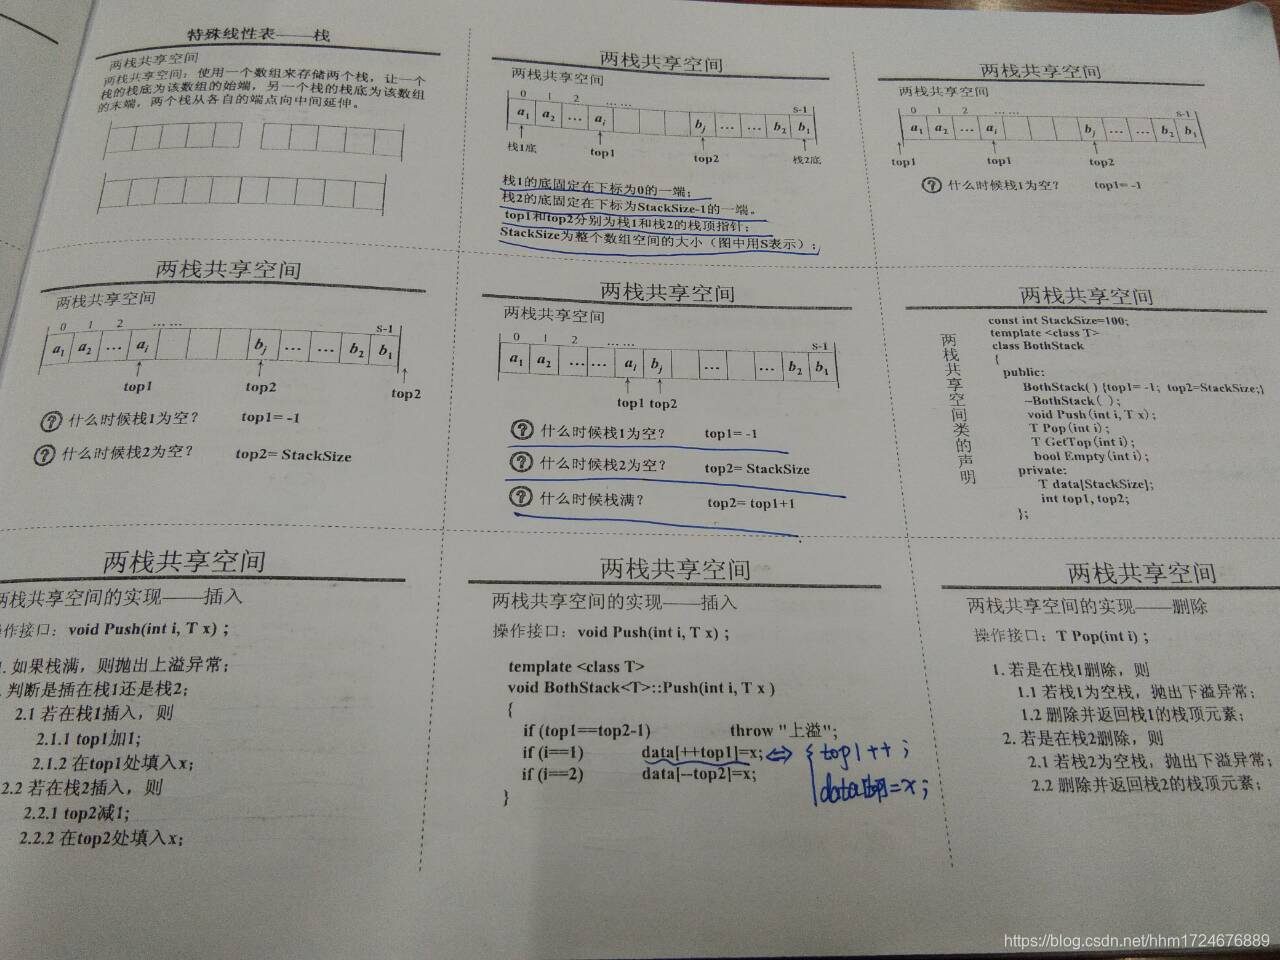 特殊线性表——栈
两栈共享空间
两栈共享空间：使用一个数组来存储两个栈，让一个
栈的栈底为该数组的始端，另一个栈的栈底为该数组
的末端，两个栈从各自的端点向中间延伸。
两栈共享空间
两栈共享空间
0 1 2 …… S-1
a1 a2 … ai bj … … b2 b1
栈1底 top1 top2 栈2底
栈1的底固定在下标为0的一端；
栈2的底固定在下标为StackSize-1的一端。
top1和top2分别为栈1和栈2的栈顶指针；
StackSize为整个数组空间的大小（图中用S表示）；
两栈共享空间
两栈共享空间
0 1 2 …… S-1
a1 a2 … ai bj … … b2 b1
top1 top1 top2
? 什么时候栈1为空？ top1= -1
两栈共享空间
两栈共享空间
0 1 2 …… S-1
a1 a2 … ai bj … … b2 b1
top1 top2 top2
? 什么时候栈1为空？ top1= -1
? 什么时候栈2为空？ top2= StackSize
两栈共享空间
两栈共享空间
0 1 2 …… S-1
a1 a2 … … ai bj … … b2 b1
top1 top2
? 什么时候栈1为空？ top1= -1
? 什么时候栈2为空？ top2= StackSize
? 什么时候栈满？ top2= top1+1
两栈共享空间
两栈共享空间类的声明
const int StackSize=100;
template <class T>
class BothStack
{
public:
BothStack( ) {top1= -1; top2=StackSize;}
~BothStack( );
void Push(int i, T x);
T Pop(int i);
T GetTop(int i);
bool Empty(int i);
private:
T data[StackSize];
int top1, top2;
};
两栈共享空间
两栈共享空间的实现——插入
操作接口：void Push(int i, T x)；
1. 如果栈满，则抛出上溢异常；
判断是插在栈1还是栈2；
2.1 若在栈1插入，则
2.1.1 top1加1;
2.1.2 在top1处填入x;
2.2 若在栈2插入，则
2.2.1 top2减1;
2.2.2 在top2处填入x;
两栈共享空间
两栈共享空间的实现——插入
操作接口：void Push(int i, T x)；
template <class T>
void BothStack<T>::Push(int i, T x )
{
if (top1==top2-1) throw "上溢";
if (i==1) data[++top1]=x; ⇔ { top1++;
if (i==2) data[--top2]=x; data[top]=x;
}
两栈共享空间
两栈共享空间的实现——删除
操作接口：T Pop(int i)；
1. 若是在栈1删除，则
1.1 若栈1为空栈，抛出下溢异常；
1.2 删除并返回栈1的栈顶元素；
2. 若是在栈2删除，则
2.1 若栈2为空栈，抛出下溢异常；
2.2 删除并返回栈2的栈顶元素；
https://blog.csdn.net/hhm1724676889